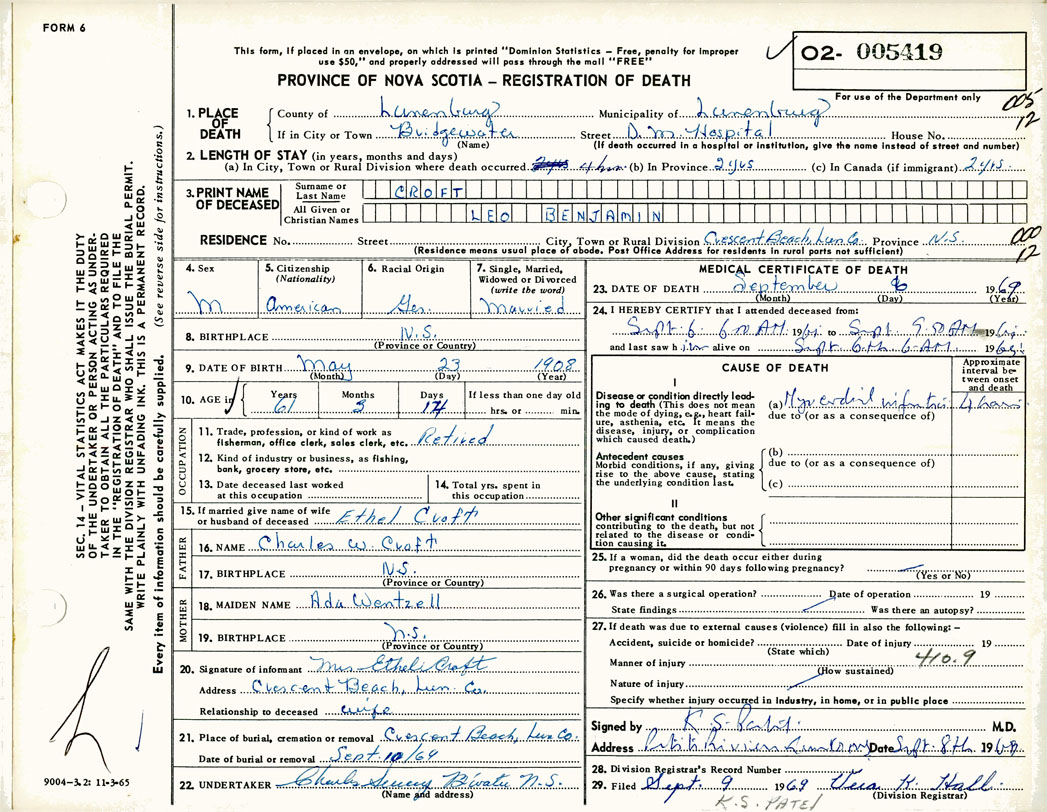 FORM 6
This form, if placed in an envelope, on which is printed "Dominion Statistics – Free, penalty for improper
use $50," and properly addressed will pass through the mail "FREE"
PROVINCE OF NOVA SCOTIA – REGISTRATION OF DEATH
O2- 005419
For use of the Department only
005
12
1. PLACE OF DEATH
County of Lunenburg Municipality of Lunenburg
If in City or Town Bridgewater Street D. M. Hospital House No.
(Name) (If death occurred in a hospital or institution, give the name instead of street and number)
2. LENGTH OF STAY (in years, months and days)
(a) In City, Town or Rural Division where death occurred (b) In Province 2 yrs (c) In Canada (if immigrant) 2 yrs.
3. PRINT NAME OF DECEASED
Surname or Last Name CROFT
All Given or Christian Names LEO BENJAMIN
RESIDENCE No. Street City, Town or Rural Division Crescent Beach, Lun Co. Province N.S.
(Residence means usual place of abode. Post Office Address for residents in rural parts not sufficient)
000
12
4. Sex
M
5. Citizenship (Nationality)
American
6. Racial Origin
Ger.
7. Single, Married, Widowed or Divorced (write the word)
Married
8. BIRTHPLACE N.S.
(Province or Country)
9. DATE OF BIRTH May 23 1908
(Month) (Day) (Year)
10. AGE in Years Months Days If less than one day old
61 3 14 hrs. or min.
OCCUPATION
11. Trade, profession, or kind of work as
fisherman, office clerk, sales clerk, etc. Retired
12. Kind of industry or business, as fishing,
bank, grocery store, etc.
13. Date deceased last worked
at this occupation
14. Total yrs. spent in
this occupation
15. If married give name of wife
or husband of deceased Ethel Croft
FATHER
16. NAME Charles W. Croft
17. BIRTHPLACE N.S.
(Province or Country)
MOTHER
18. MAIDEN NAME Ada Wentzell
19. BIRTHPLACE N.S.
(Province or Country)
20. Signature of informant Mrs Ethel Croft
Address Crescent Beach, Lun. Co.
Relationship to deceased wife
21. Place of burial, cremation or removal Crescent Beach, Lun Co.
Date of burial or removal Sept 10/69
22. UNDERTAKER Charles B'water N.S.
(Name and address)
MEDICAL CERTIFICATE OF DEATH
23. DATE OF DEATH September 6 1969
(Month) (Day) (Year)
24. I HEREBY CERTIFY that I attended deceased from:
Sept. 6. 6 00 AM 1969 to Sept 9.00 AM 1969
and last saw him alive on Sept. 6th 6 AM. 1969
CAUSE OF DEATH
Approximate
interval be-
tween onset
and death
I
Disease or condition directly lead-
ing to death (This does not mean
the mode of dying, e.g., heart fail-
ure, asthenia, etc. It means the
disease, injury, or complication
which caused death.)
(a) Myocardial infarction 4 hours
due to (or as a consequence of)
Antecedent causes
Morbid conditions, if any, giving
rise to the above cause, stating
the underlying condition last.
(b)
due to (or as a consequence of)
(c)
II
Other significant conditions
contributing to the death, but not
related to the disease or condi-
tion causing it.
25. If a woman, did the death occur either during
pregnancy or within 90 days following pregnancy?
(Yes or No)
26. Was there a surgical operation? Date of operation 19
State findings Was there an autopsy?
27. If death was due to external causes (violence) fill in also the following: –
Accident, suicide or homicide? Date of injury 19
(State which)
410.9
Manner of injury
(How sustained)
Nature of injury
Specify whether injury occurred in Industry, in home, or in public place
Signed by K. S. M.D.
Address Date Sept. 8th 1969
28. Division Registrar's Record Number
29. Filed Sept. 9 1969 Vera K. Hall
(Division Registrar)
K.S. PATEL
SEC. 14 – VITAL STATISTICS ACT MAKES IT THE DUTY
OF THE UNDERTAKER OR PERSON ACTING AS UNDER-
TAKER TO OBTAIN ALL THE PARTICULARS REQUIRED
IN THE "REGISTRATION OF DEATH" AND TO FILE THE
SAME WITH THE DIVISION REGISTRAR WHO SHALL ISSUE THE BURIAL PERMIT.
WRITE PLAINLY WITH UNFADING INK. THIS IS A PERMANENT RECORD.
Every item of information should be carefully supplied. (See reverse side for instructions.)
9004-3.2: 11-3-65